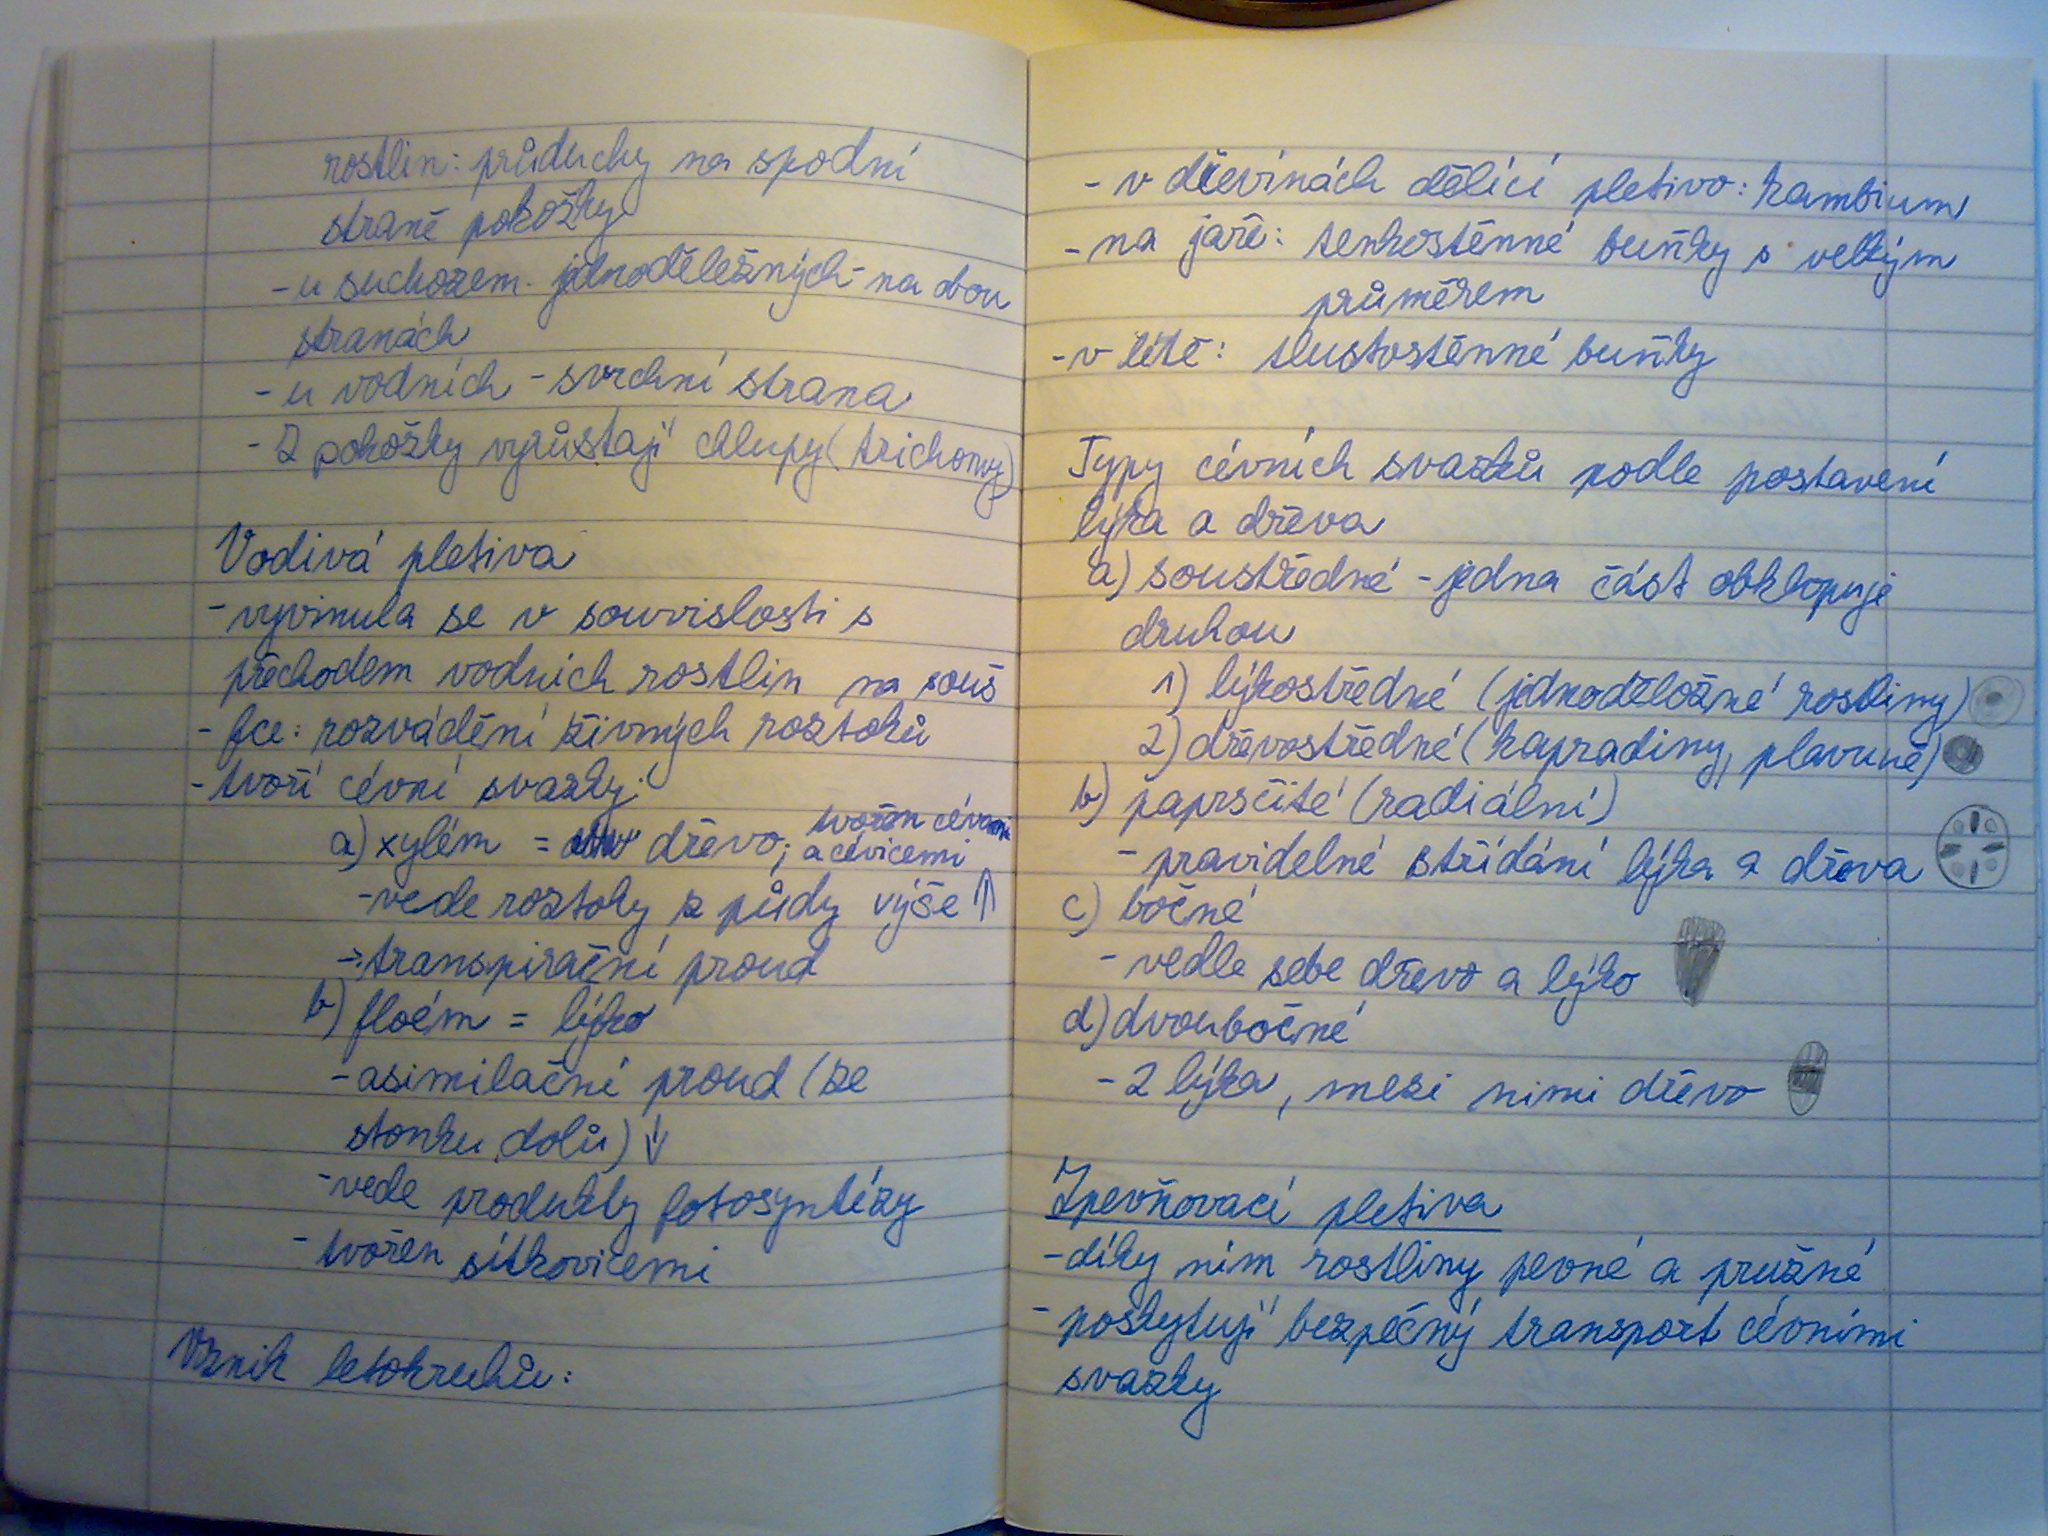 rostlin: průduchy na spodní
straně pokožky
- u suchozem. jednoděložných - na obou
stranách
- u vodních - svrchní strana
- Z pokožky vyrůstají chlupy (trichomy)
Vodivá pletiva
- vyvinula se v souvislosti s
přechodem vodních rostlin na souš
- fce: rozvádění živných roztoků
- tvoří cévní svazky:
a) xylém = dřevo; tvořen cévami
a cévicemi
- vede roztoky z půdy výše ↑
-: transpirační proud
b) floém = lýko
- asimilační proud (ze
stonku dolů) ↓
- vede produkty fotosyntézy
- tvořen sítkovicemi
Vznik letokruhů:
- v dřevinách dělící pletivo: kambium
- na jaře: tenkostěnné buňky s velkým
průměrem
- v létě: tlustostěnné buňky
Typy cévních svazků podle postavení
lýka a dřeva
a) soustředné - jedna část obklopuje
druhou
1) lýkostředné (jednoděložné rostliny)
2) dřevostředné (kapradiny, plavuně)
b) paprsčité (radiální)
- pravidelné střídání lýka a dřeva
c) bočné
- vedle sebe dřevo a lýko
d) dvoubočné
- 2 lýka, mezi nimi dřevo
Zpevňovací pletiva
- díky nim rostliny pevné a pružné
- poskytují bezpečný transport cévními
svazky